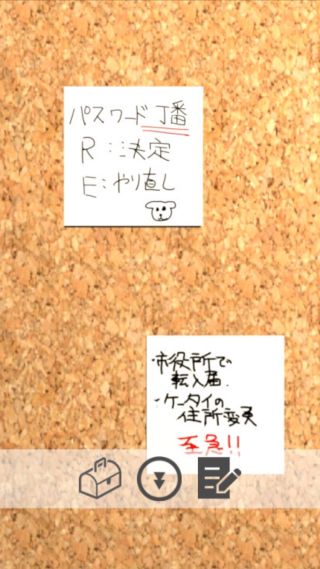 パスワード 丁番
R:決定
E:やり直し
・市役所で
転入届.
・ケータイの
住所変更
至急!!